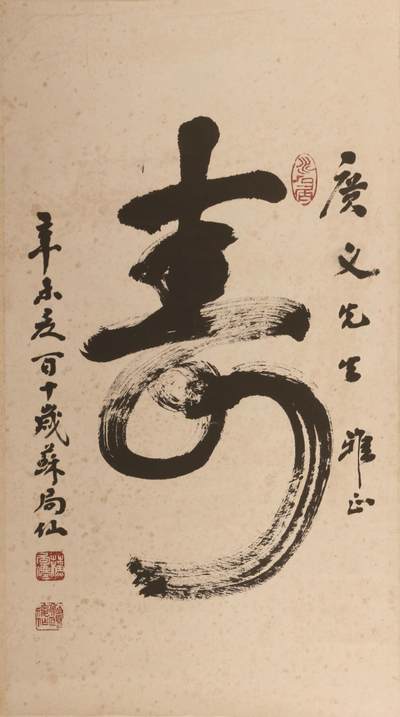 廣义先生 雅正
壽
辛未夏百十歲蘇局仙